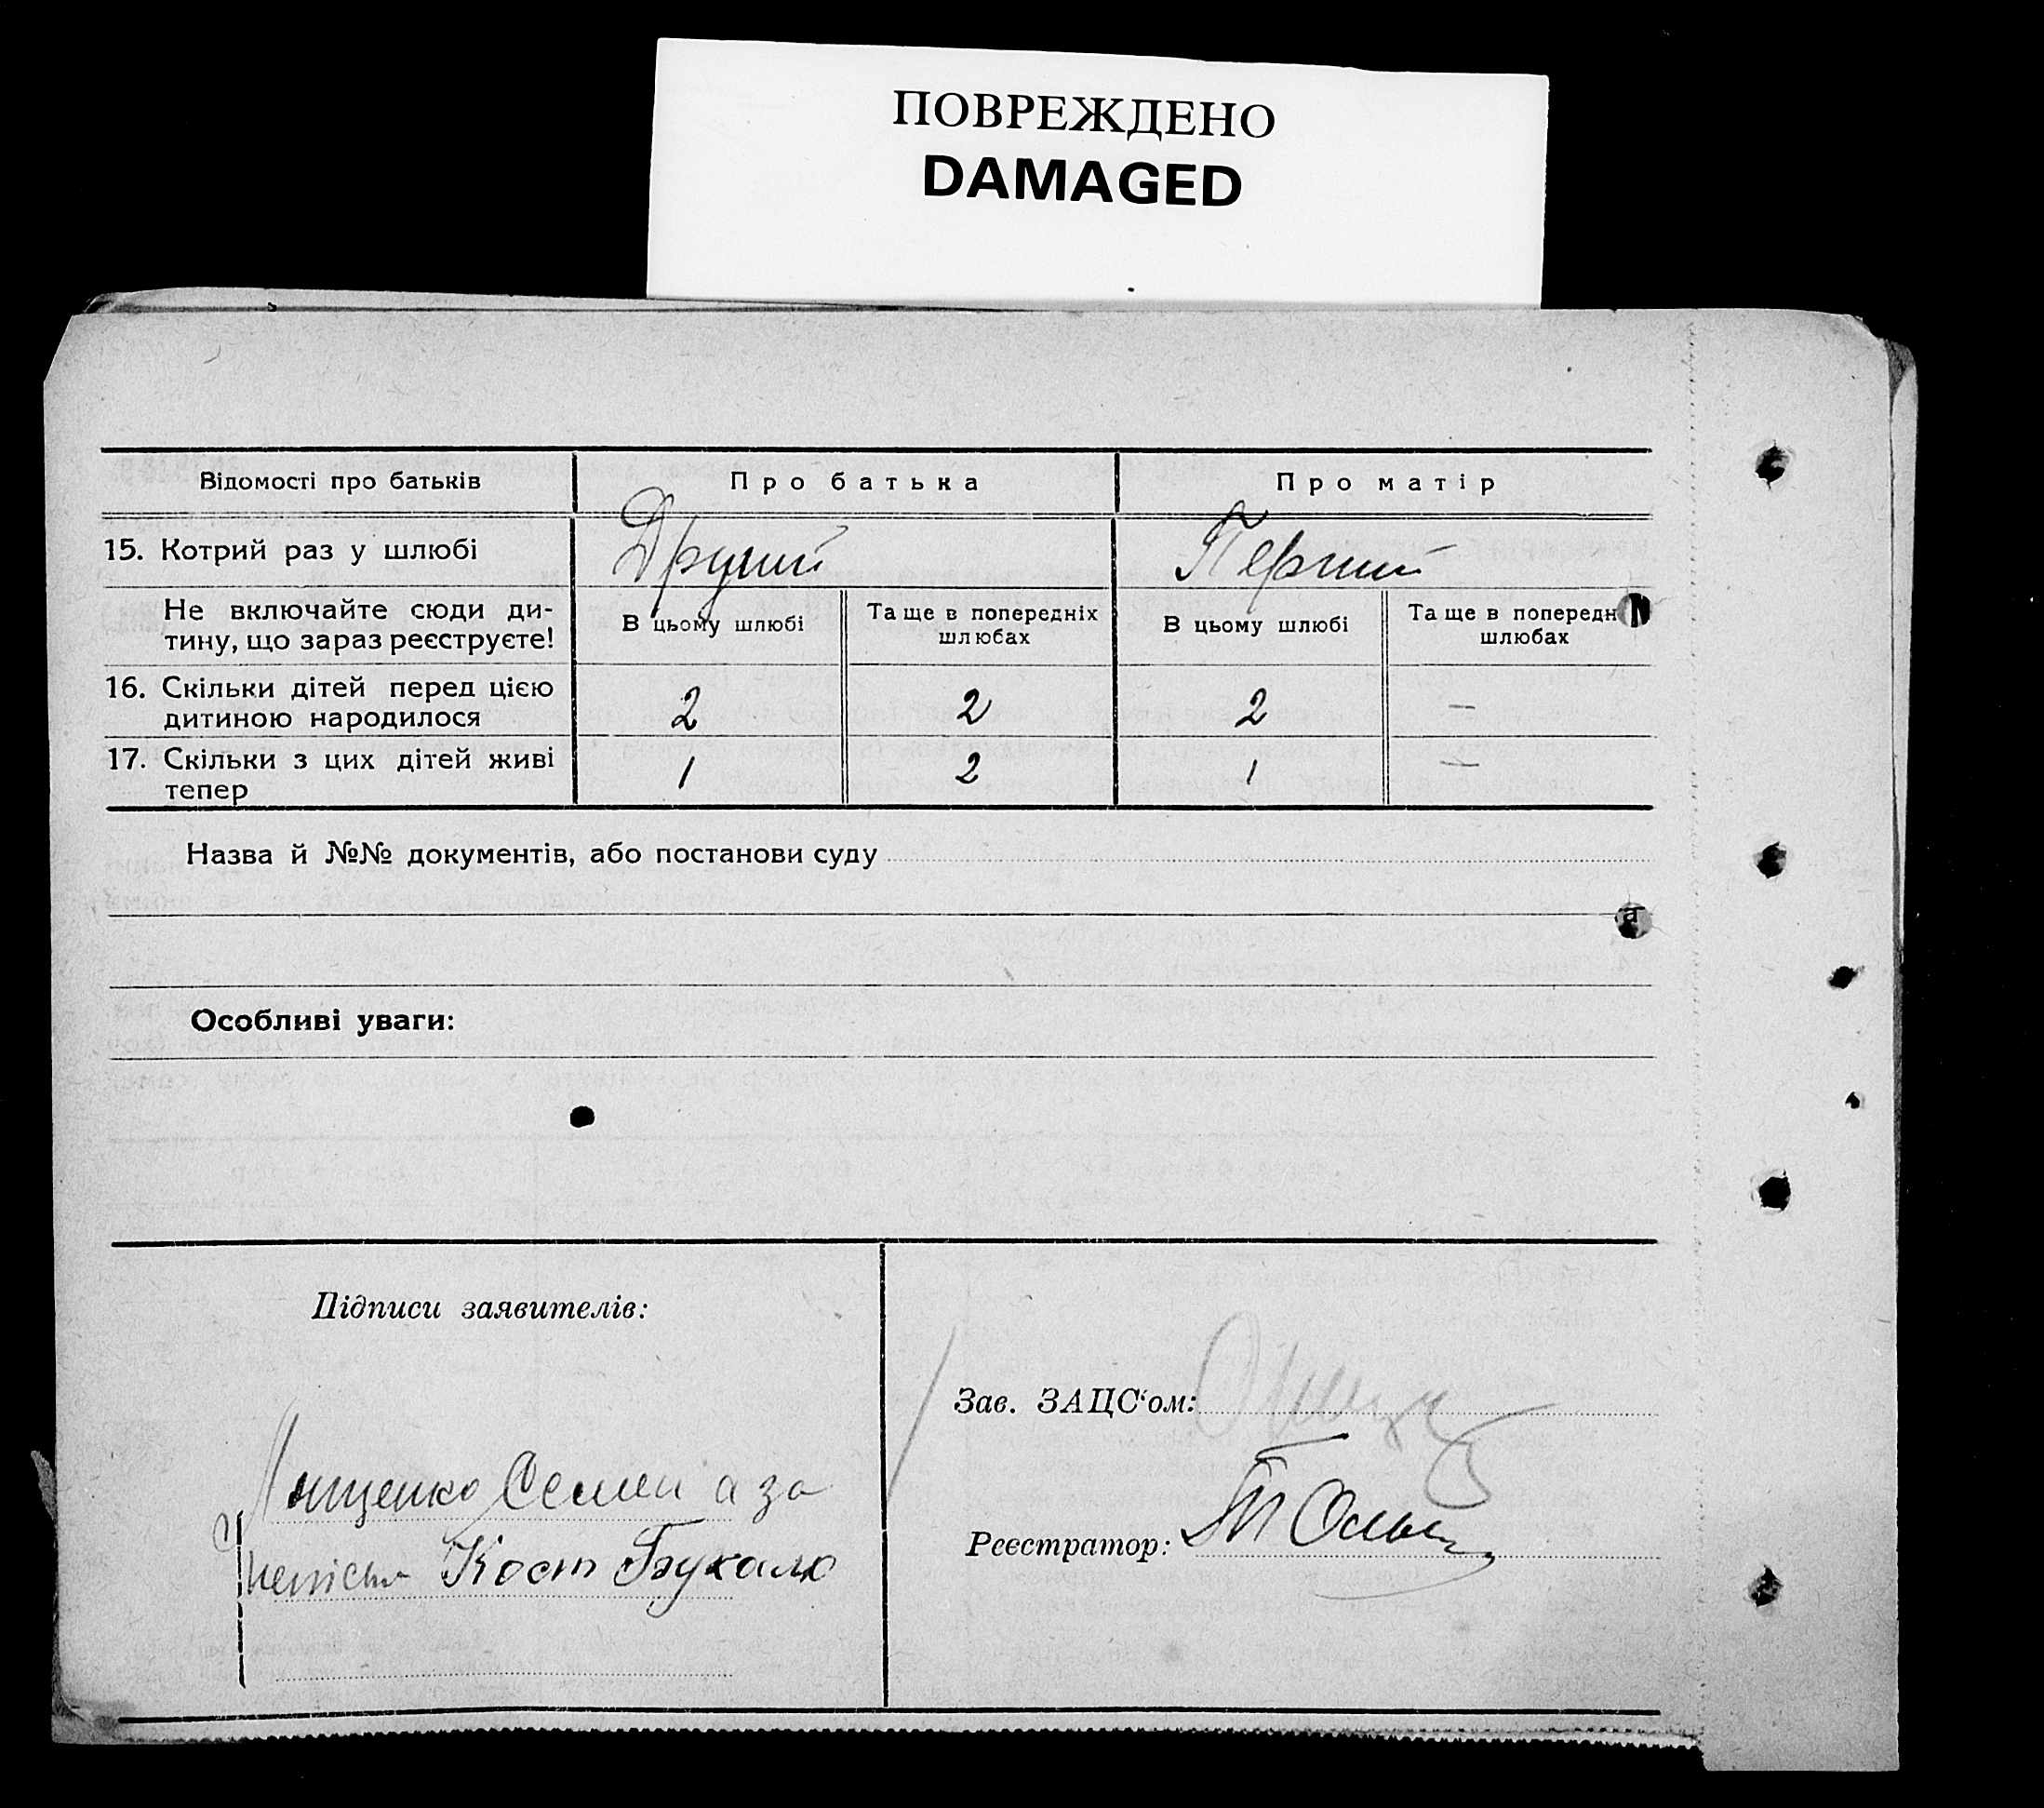 ПОВРЕЖДЕНО
DAMAGED
Відомості про батьків
Про батька
Про матір
15. Котрий раз у шлюбі
Другий
Перший
Не включайте сюди ди-
тину, що зараз реєструєте!
В цьому шлюбі
Та ще в попередніх
шлюбах
В цьому шлюбі
Та ще в попередн
шлюбах
16. Скільки дітей перед цією
дитиною народилося
2
2
2
—
17. Скільки з цих дітей живі
тепер
1
2
1
—
Назва й №№ документів, або постанови суду
Особливі уваги:
Підписи заявителів:
Зав. ЗАЦС‘ом:
Семен а за
Кост Бухало
Реєстратор: